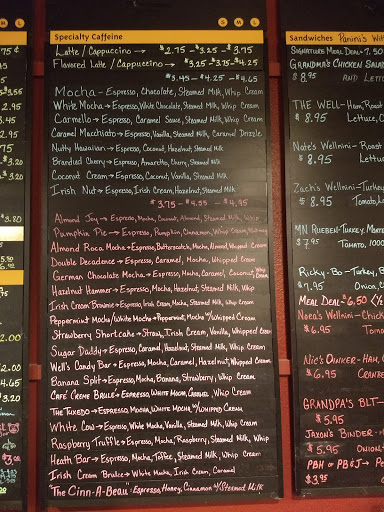 S M L
Specialty Caffeine
Latte / Cappuccino → $2.75 - $3.25 - $3.75
Flavored Latte / Cappuccino → $3.25 - $3.75 - $4.25
$3.45 - $4.25 - $4.65
Mocha - Espresso, Chocolate, Steamed Milk, Whip Cream
White Mocha → Espresso, White Chocolate, Steamed Milk, Whip Cream
Carmello → Espresso, Caramel Sauce, Steamed Milk, Whip Cream
Caramel Macchiato → Espresso, Vanilla, Steamed Milk, Caramel Drizzle
Nutty Hawaiian → Espresso, Coconut, Hazelnut, Steamed Milk
Brandied Cherry → Espresso, Amaretto, Cherry, Steamed Milk
Coconut Cream → Espresso, Coconut, Vanilla, Steamed Milk
Irish Nut → Espresso, Irish Cream, Hazelnut, Steamed Milk
$3.75 - $4.55 - $4.95
Almond Joy → Espresso, Mocha, Coconut, Almond, Steamed Milk, Whip
Pumpkin Pie → Espresso, Pumpkin, Cinnamon, Whip Cream
Almond Roca Mocha → Espresso, Butterscotch, Mocha, Almond, Whipped Cream
Double Decadence → Espresso, Caramel, Mocha, Whipped Cream
German Chocolate Mocha → Espresso, Mocha, Caramel, Coconut, Whip Cream
Hazelnut Hammer → Espresso, Mocha, Hazelnut, Steamed Milk, Whip
Irish Cream Brownie → Espresso, Irish Cream, Mocha, Steamed Milk, Whip
Peppermint Mocha / White Mocha → Peppermint, Mocha w/ Whipped Cream
Strawberry Shortcake → Straw, Irish Cream, Vanilla, Whipped Cream
Sugar Daddy → Espresso, Caramel, Hazelnut, Steamed Milk, Whip Cream
Well's Candy Bar → Espresso, Mocha, Caramel, Hazelnut, Whipped Cream
Banana Split → Espresso, Mocha, Banana, Strawberry, Whip Cream
Café Creme Brulee → Espresso, White Mocha, Caramel, Whip Cream
The Tuxedo → Espresso, Mocha, White Mocha w/ Whipped Cream
White Cow → Espresso, White Mocha, Vanilla, Steamed Milk, Whip Cream
Raspberry Truffle → Espresso, Mocha, Raspberry, Steamed Milk, Whip
Heath Bar → Espresso, Mocha, Toffee, Steamed Milk, Whip Cream
Irish Cream Brulee → White Mocha, Irish Cream, Caramel
"The Cinn-A-Beau" - Espresso, Honey, Cinnamon w/ Steamed Milk
Sandwiches Panini's
Signature Meal Deal - 7.50
Grandma's Chicken Salad
$8.95
THE WELL - Ham, Roast
$8.95 Lettuce,
Nate's Wellnini - Roast
$8.95 Lettuce,
Zach's Wellnini - Turkey,
$8.95
MN Rueben - Turkey,
$7.95 Tomato, 1000
Ricky-Bo - Turkey,
$7.95 Onion,
Meal Deal $6.50
Noea's Wellnini - Chicken
$6.95 Tomato
Nic's Oinker - Ham,
$6.95 Cranbe
Grandpa's BLT -
$5.95
Jaxon's Binder -
$5.95 Onion,
PBH or PB&J -
$3.95